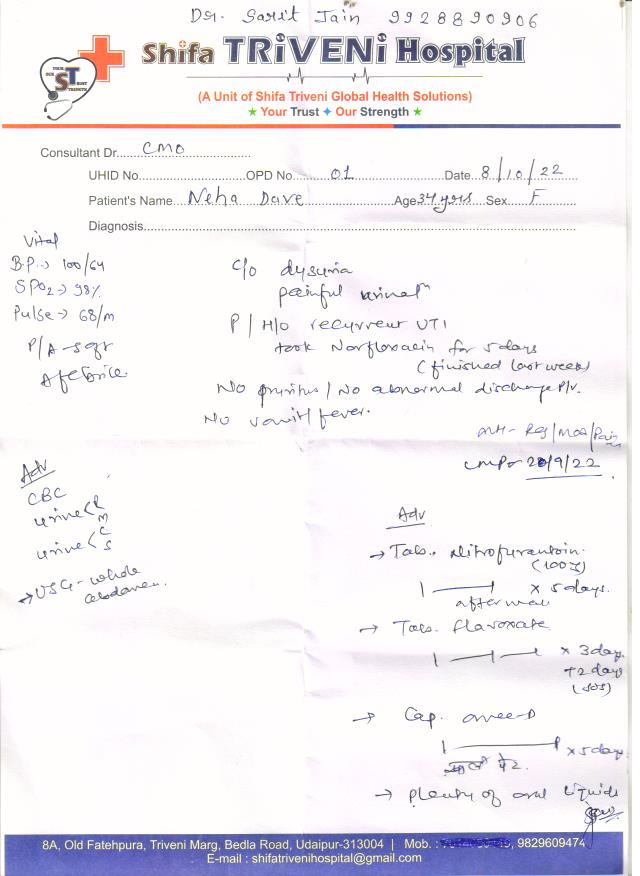 Dr. Sarit Jain 9928890906
Shifa TRiVENi Hospital
YOUR OUR ST TRUST STRENGTH
(A Unit of Shifa Triveni Global Health Solutions)
★ Your Trust ✦ Our Strength ★
Consultant Dr. CMO
UHID No. OPD No. 01 Date 8/10/22
Patient's Name Neha Dave Age 34 yrs Sex F
Diagnosis
Vital
B.P. → 100/64
SPO2 → 98%
Pulse → 68/m
P/A - soft
Afebrile.
C/o dysuria
painful urinatn
P/H/o recurrent UTI
took Norfloxacin for 5 days
(finished last week)
No pruritus / No abnormal discharge P/V.
No vomit/fever.
MH - Reg/Mod/Pain
LMP → 20/9/22
Adv
CBC
urine < R M
urine < C S
→ USG - whole abdomen.
Adv
→ Tab. Nitrofurantoin.
(100)
× 5 days.
after meal
→ Tab. flavoxate
× 3 days
+ 2 days
(SOS)
→ Cap.
× 5 days
खाली पेट.
→ Plenty of oral liquids
8A, Old Fatehpura, Triveni Marg, Bedla Road, Udaipur-313004 | Mob. : 9829609474
E-mail : shifatrivenihospital@gmail.com